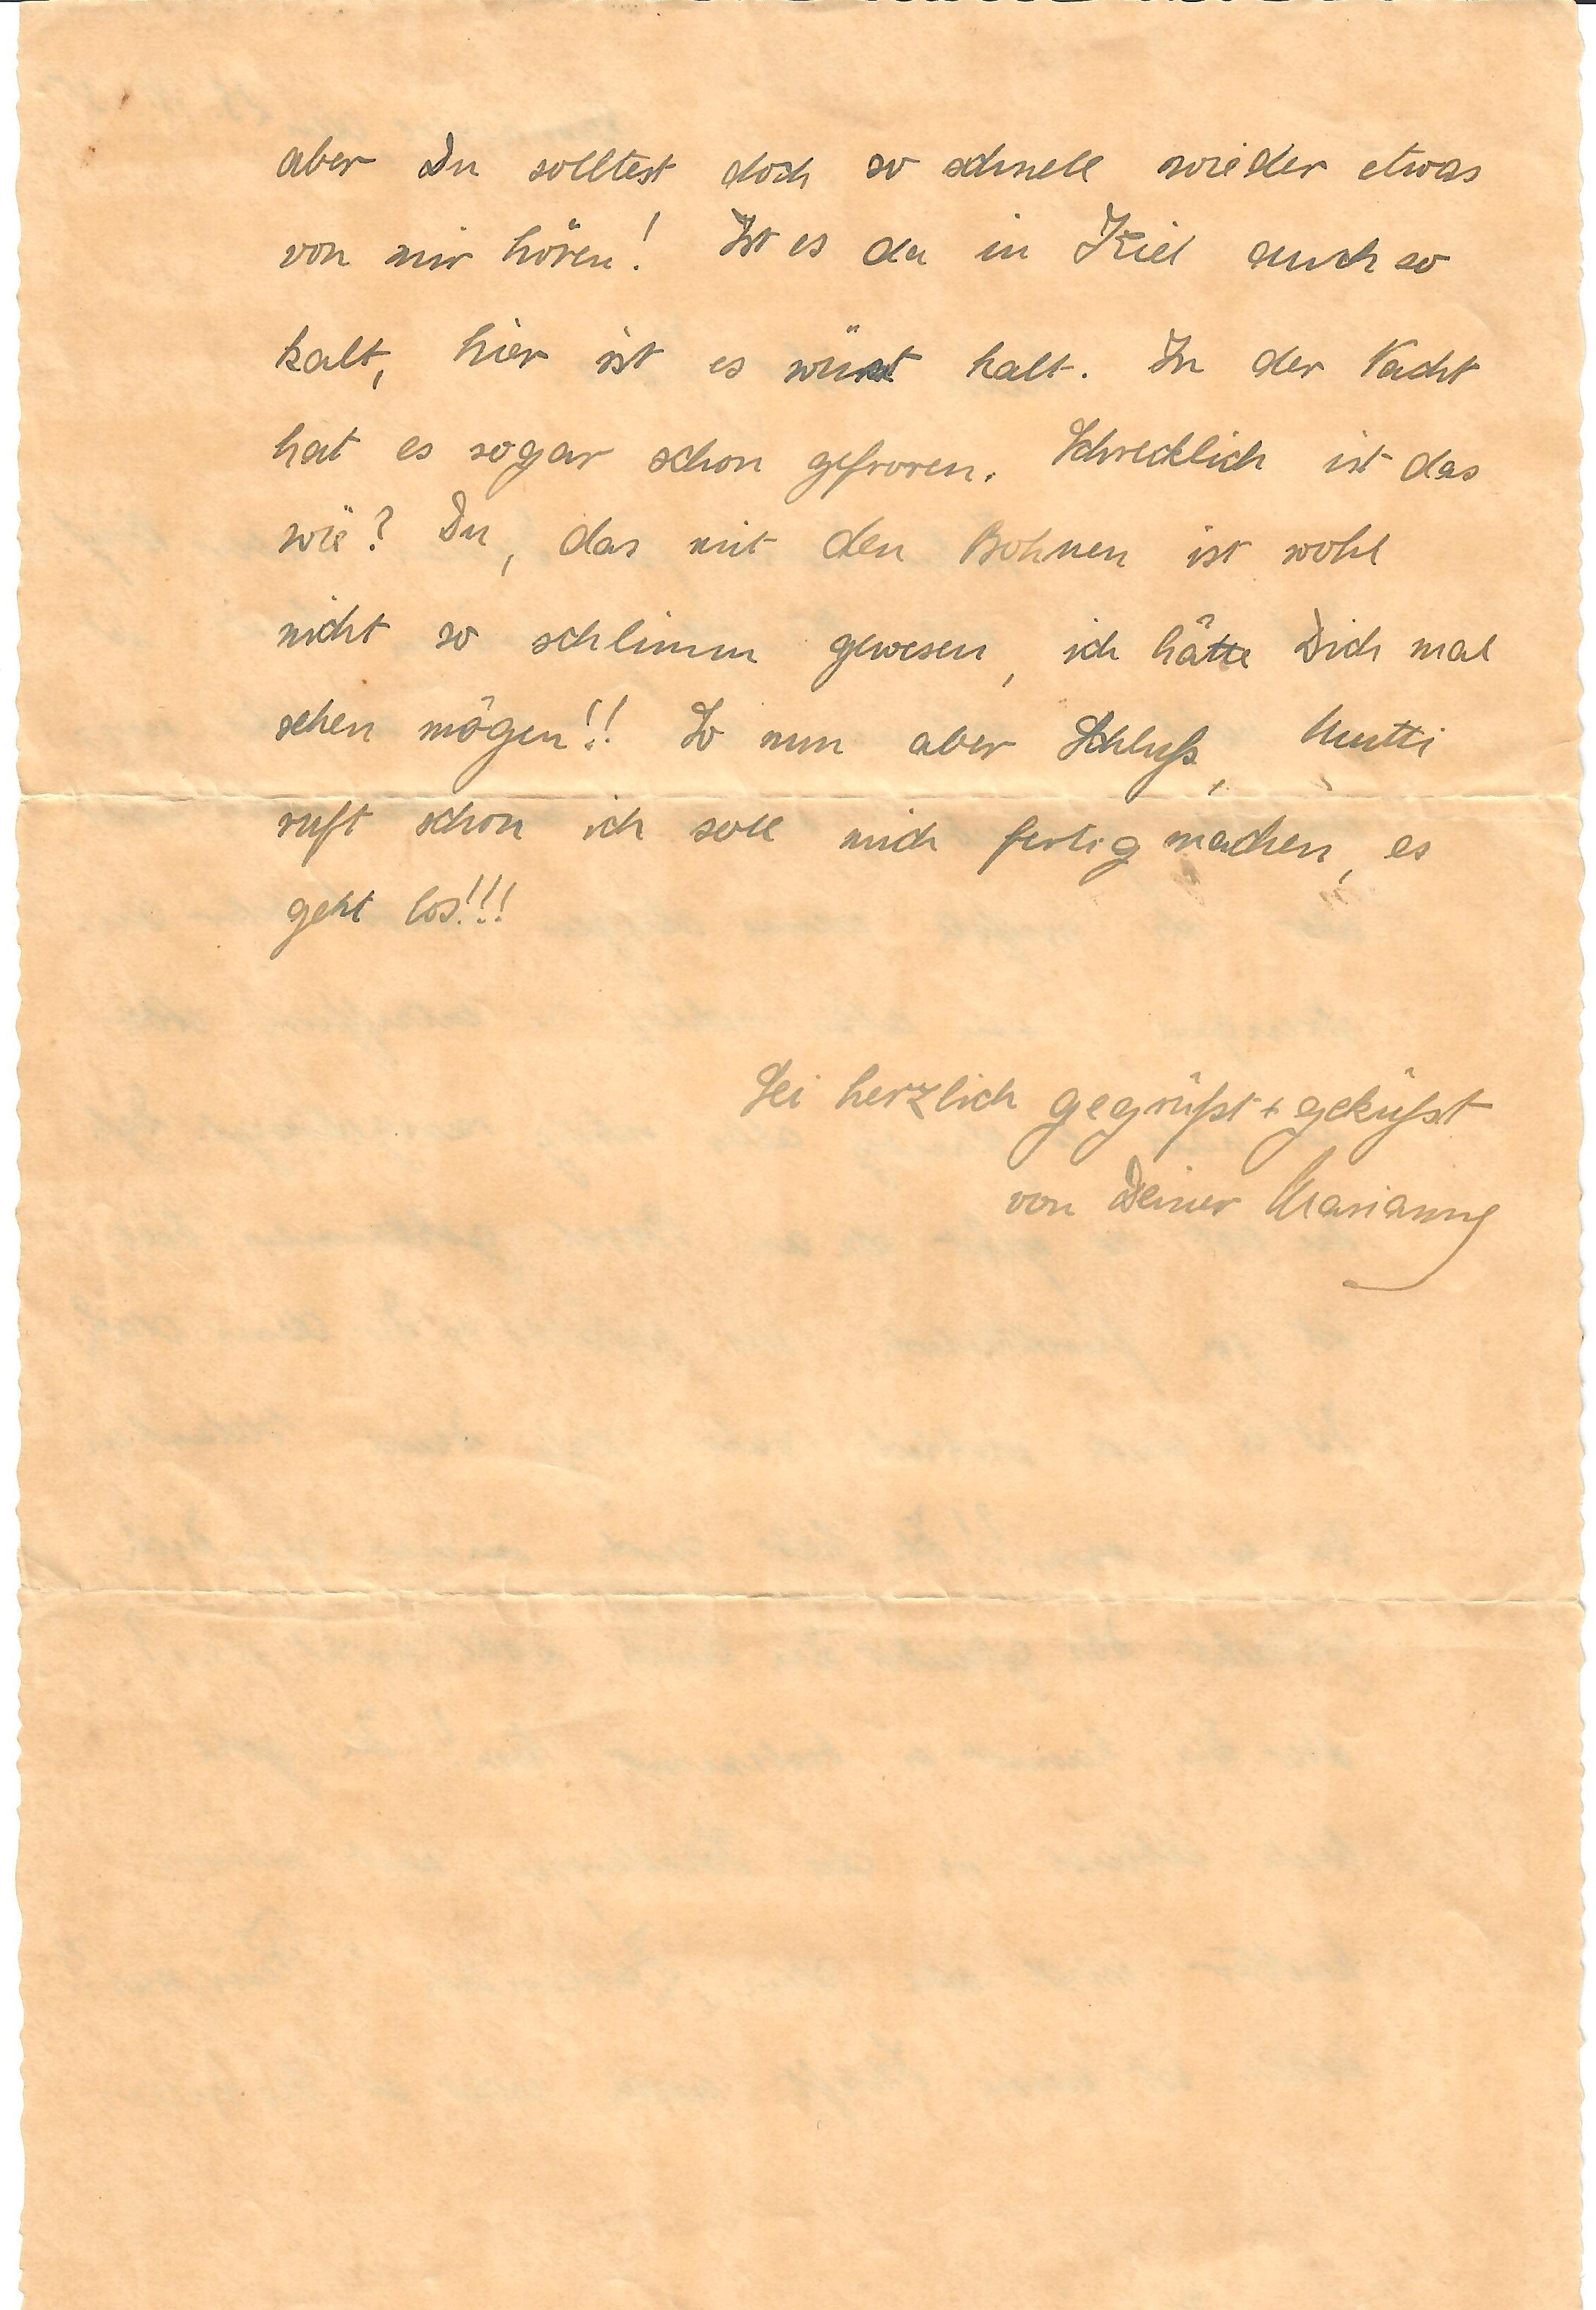 aber Du solltest doch so schnell wieder etwas
von mir hören! Ist es da in Kiel auch so
kalt, hier ist es wüst kalt. In der Nacht
hat es sogar schon gefroren. Schrecklich ist das
wie? Du, das mit den Bohnen ist wohl
nicht so schlimm gewesen, ich hätte Dich mal
sehen mögen!! So nun aber Schluß, Mutti
ruft schon ich soll mich fertig machen, es
geht los!!!
Sei herzlich gegrüßt + geküßt
von Deiner Marianne